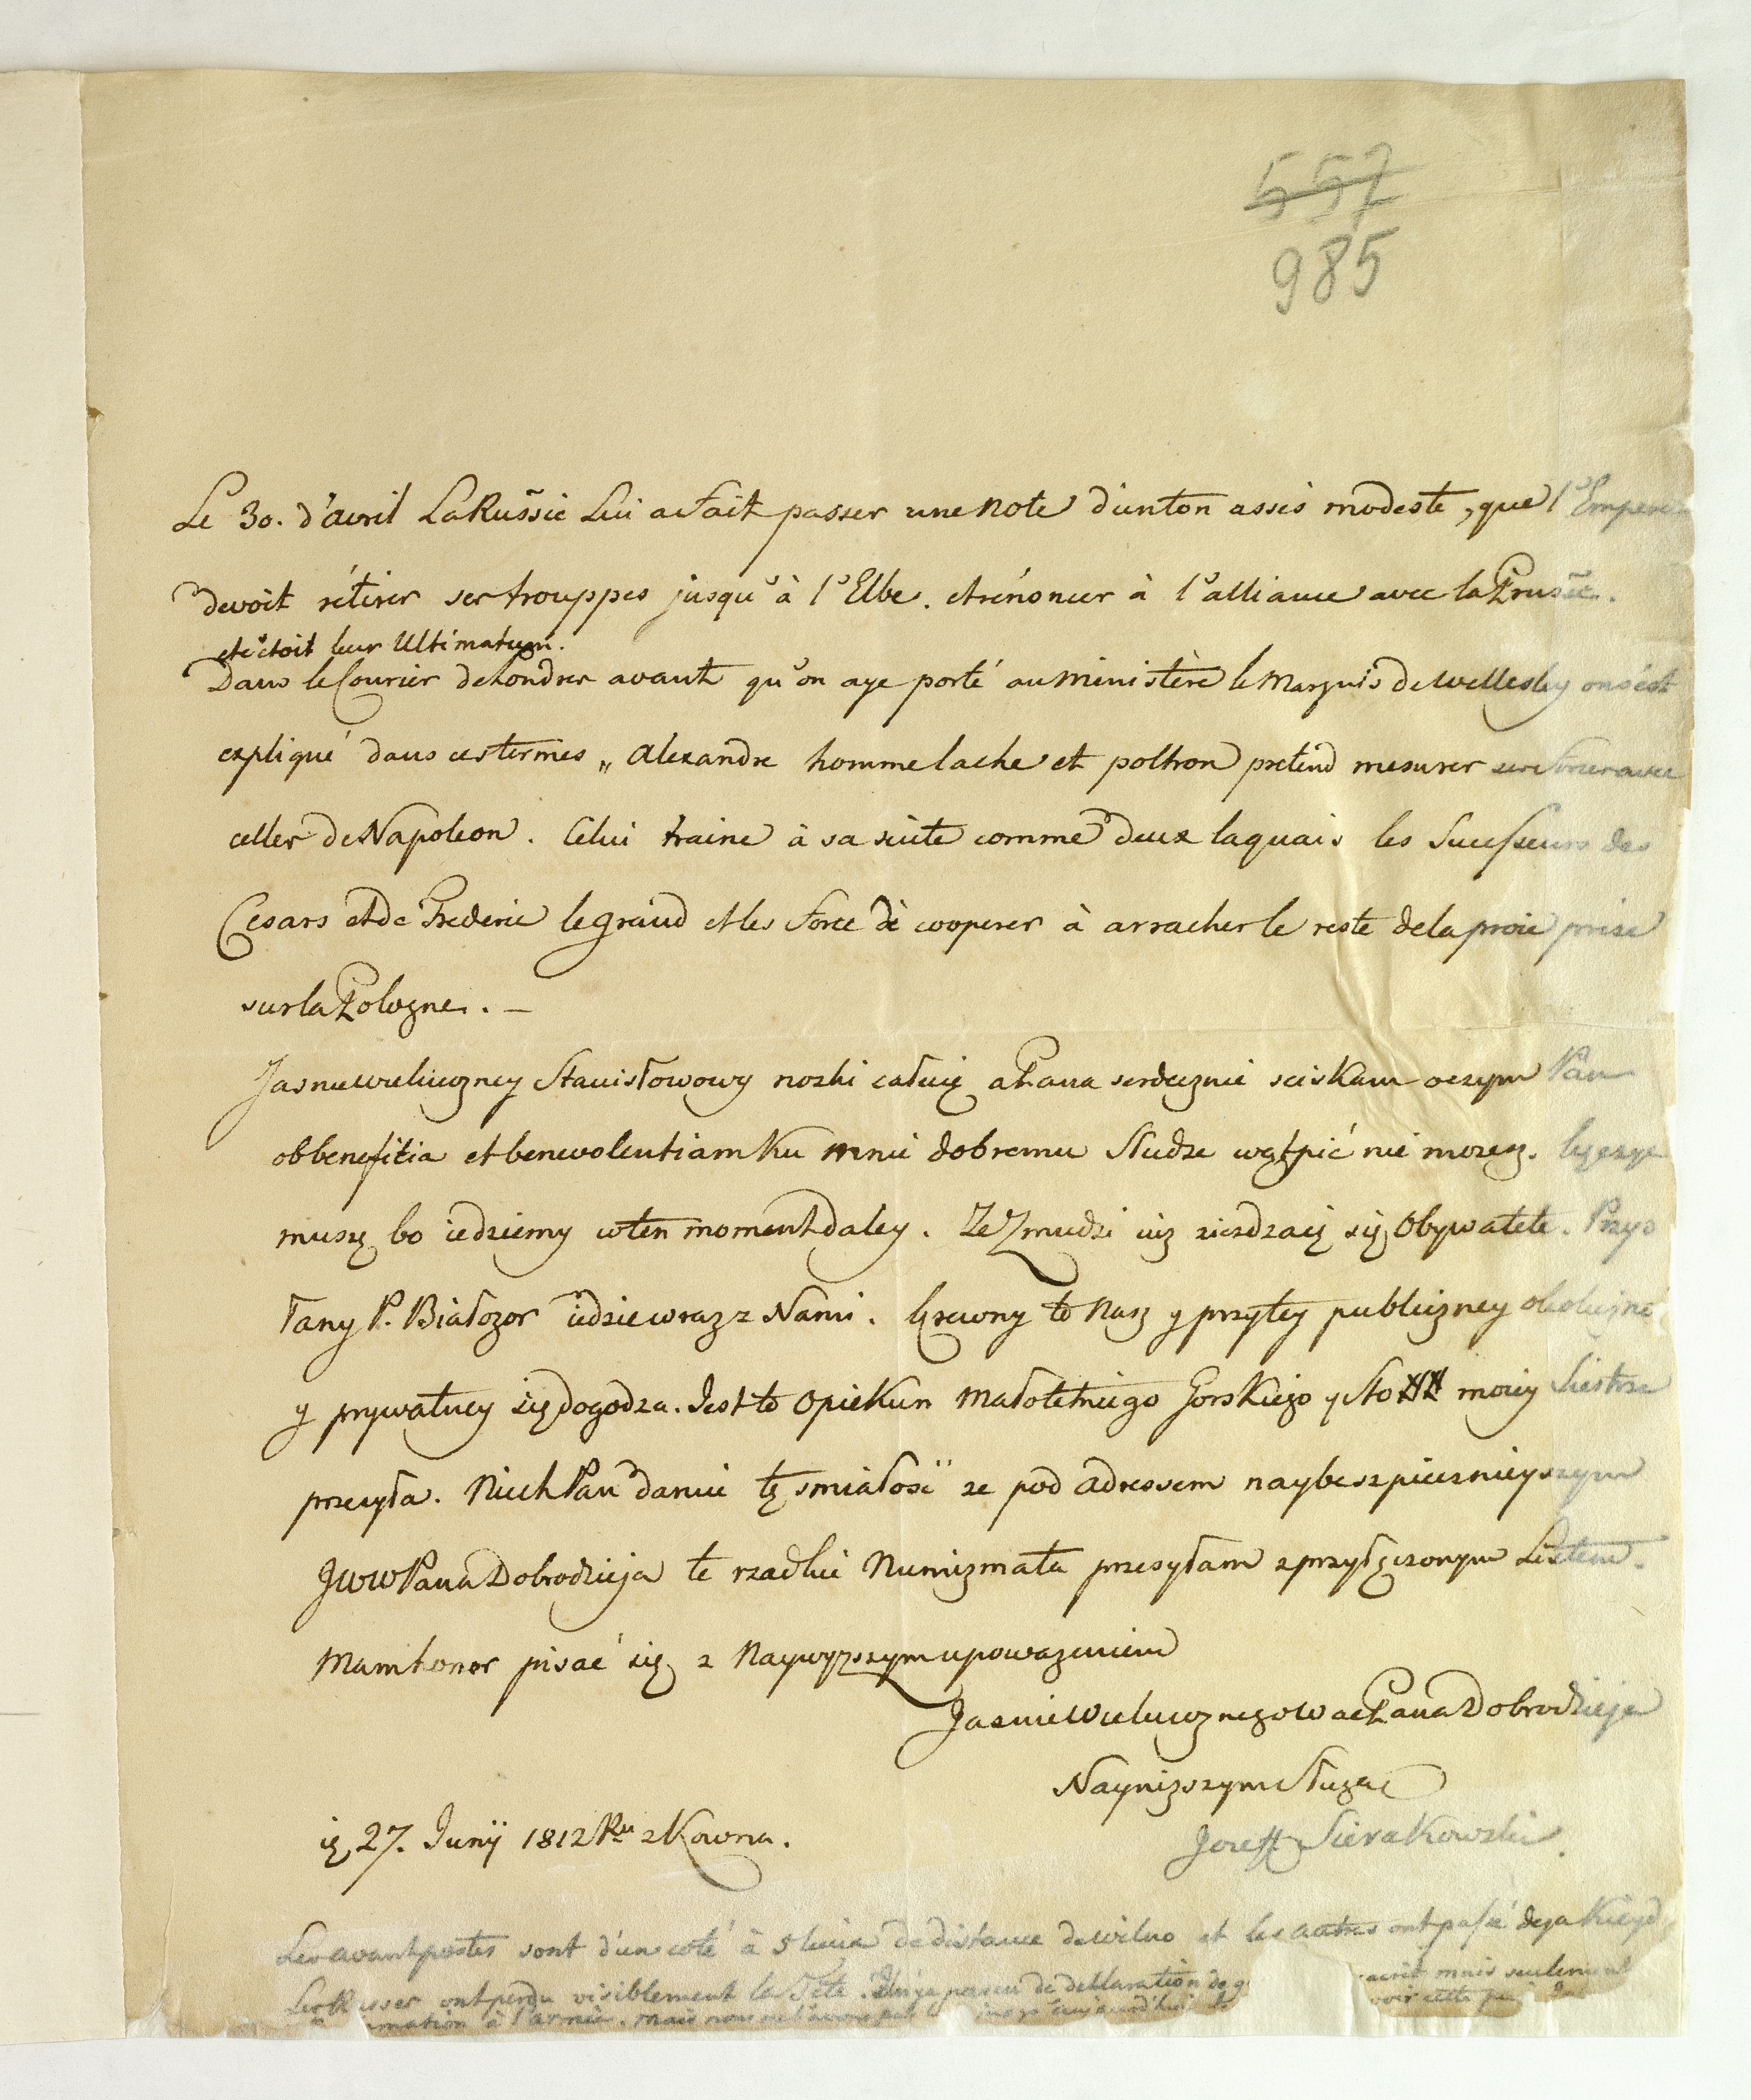 557
985
Le 30. d'avril La Russie Lui a fait passer une note d'un ton assés modeste, que l'Empereur
devoit rétirer ses trouppes jusqu'à l'Elbe. et rénoncer à l'alliance avec la Prussie.
et c'etoit leur Ultimatum.
Dans le Courier de Londres avant qu'on aye porté au ministère le Marquis de Wellesley on s'est
expliqué dans ces termes „ Alexandre homme lache et poltron pretend mesurer ses forces avec
celles de Napoleon. Celui traine à sa suite comme deux laquais les Successeurs des
Cesars et de Frederic le grand et les force de cooperer à arracher le reste de la proie prise
sur la Pologne. –
Jasniewielmozney Stanisłowowy nozki całuię a Pana serdecznie sciskam o czym Pan
ob benefitia et benevolentiam ku mnie dobremu Słudze wątpić nie mozesz.
muszę bo iedziemy w ten moment daley. Ze Zmudzi iuz ziezdzaią się Obywatele. Przys
łany P. Białozor iedzie wraz z Nami. Krewny to Nasz y przy tey publiczney okoliczno
y prywatney się dogodza. Jest to Opiekun małoletniego Gorskiego y sto XX moiey Siestrze
przesyła. Niech Pan daruie tę smiałość ze pod adressem naybezpiecznieyszym
JWW Pana Dobrodzieja te rzadkie Numizmata przesyłam z przyłączonym Listem.
Mam honor pisać się z Naywyzszym upowazeniem
Jasnie Wielmoznego Wac Pana Dobrodzieja
Naynizszym Sługą
Jozeff Sierakowski.
27. Junij 1812 Ru z Kowna.
Les avantpostes sont d'un coté à 5 lieux de distance de Wilno et les autres ont passé deja Kieyd
Les Russes ont perdu visiblement la Tete. Il n'y a pas eu de declaration de g mais seulement
mation à l'armée. mais nous ne l'avons pas aujourd'hui voir cette